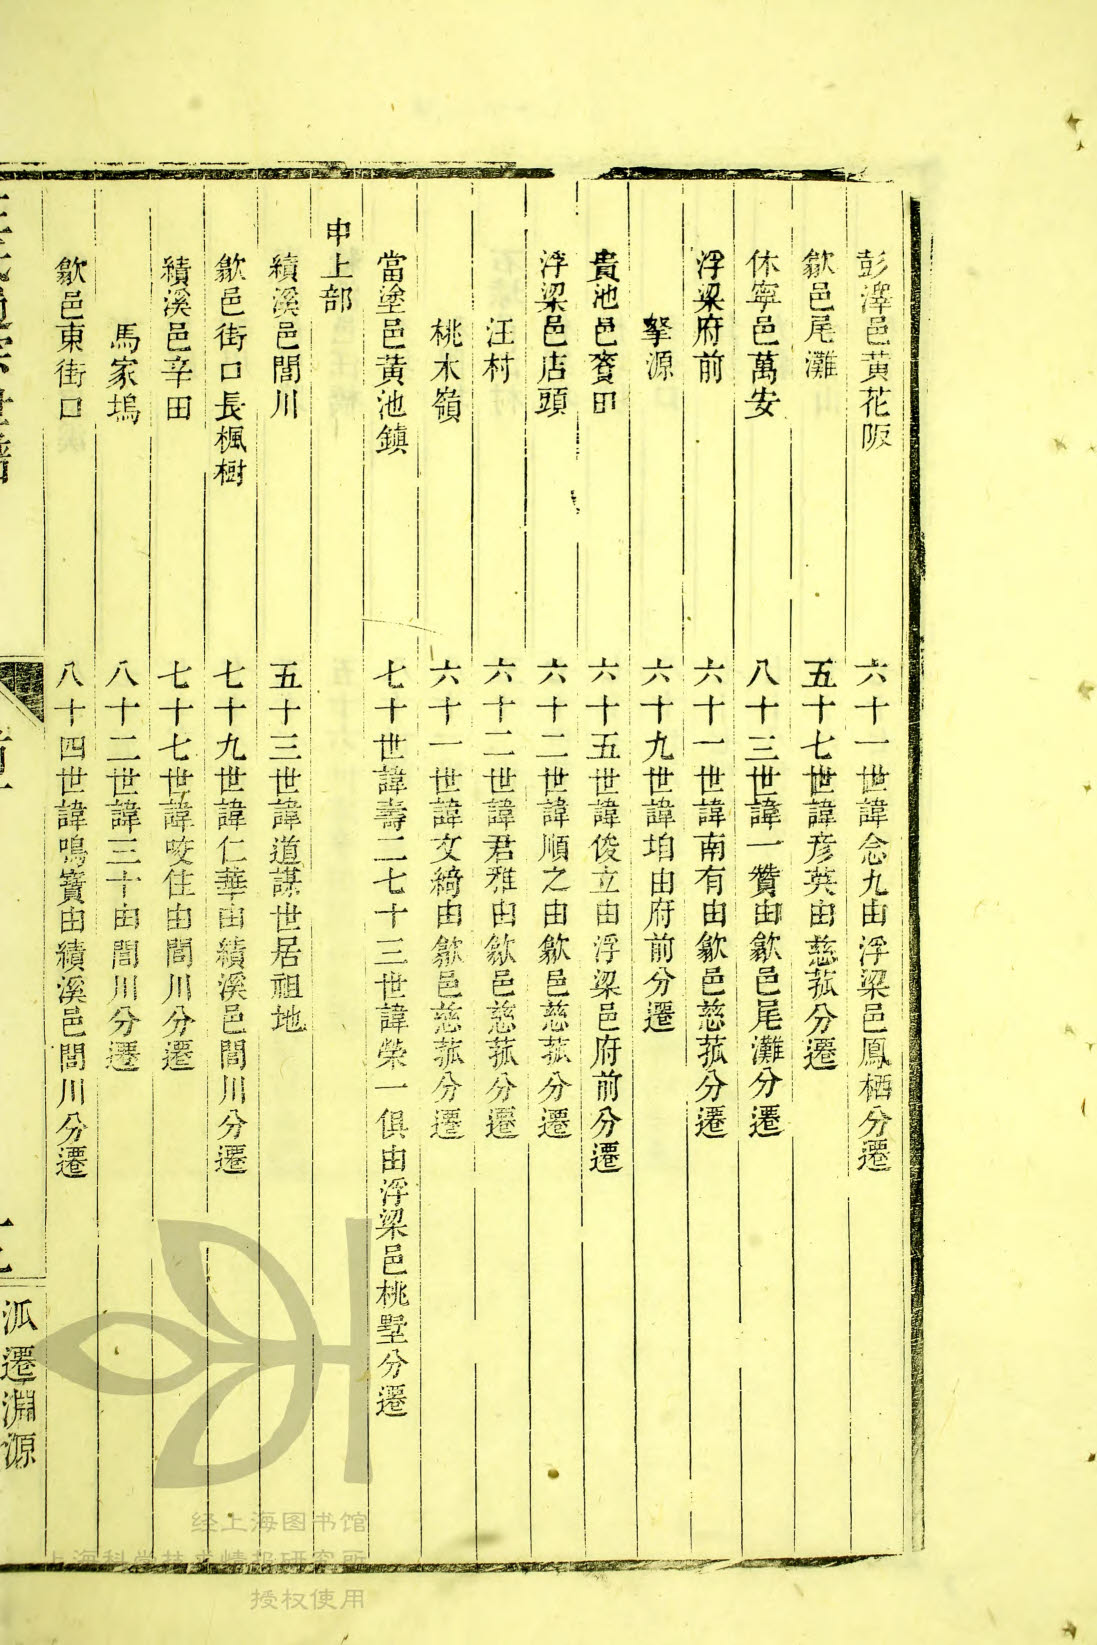 彭澤邑黄花阪　六十一世諱念九由浮梁邑鳳栖分遷
歙邑尾灘　五十七世諱彦英由慈菰分遷
休寧邑萬安　八十三世諱一贊由歙邑尾灘分遷
浮梁府前　六十一世諱南有由歙邑慈菰分遷
源　六十九世諱垍由府前分遷
貴池邑賚田　六十五世諱俊立由浮梁邑府前分遷
浮梁邑店頭　六十二世諱順之由歙邑慈菰分遷
汪村　六十二世諱君雅由歙邑慈菰分遷
桃木嶺　六十一世諱文綺由歙邑慈菰分遷
當塗邑黄池鎮　七十世諱壽二七十三世諱榮一俱由浮梁邑桃墅分遷
申上部
績溪邑誾川　五十三世諱道謀世居祖地
歙邑街口長楓樹　七十九世諱仁華由績溪邑誾川分遷
績溪邑辛田　七十七世諱咬住由誾川分遷
馬家塢　八十二世諱三十由誾川分遷
歙邑東街口　八十四世諱鳴寶由績溪邑誾川分遷
派遷淵源
经上海图书馆
上海科学技术情报研究所
授权使用